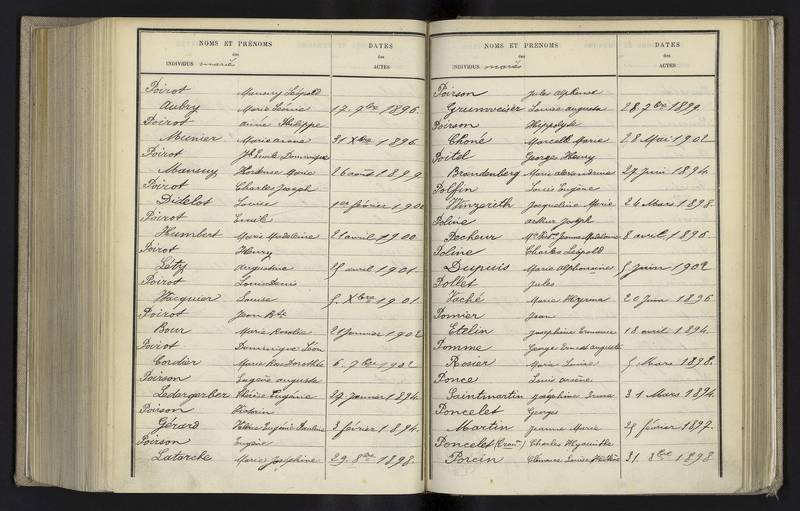 NOMS ET PRÉNOMS
des
INDIVIDUS mariés
DATES
des
ACTES
Poirot Mansuy Léopold
Aubry Marie Léonie 17. 7bre 1896.
Poirot Aimé Philippe
Munier Marie 31 Xbre 1896.
Poirot Jh Emile Dominique
Mansuy Hortense Marie 26 août 1899
Poirot Charles Joseph
Didelot Louise 1er février 1900
Poirot Emile
Humbert Marie Madeleine 21 avril 1900
Poirot Henry
Léty Augustine avril 1901.
Poirot Louis Denis
Wacquier Louise 5. Xbre 1901.
Poirot Jean Bte
Bour Marie Rosalie 21 Janvier 1902
Poirot Dominique Léon
Cordier Marie Rose Dorothée 6. 7bre 1902
Poirson Eugène Auguste
Ledergerber Thérèse Eugénie 27 Janvier 1894
Poirson Victorin
Gérard Eugénie Pauline 3 février 1894.
Poirson Eugène
Latarche Marie Joséphine 29. 8bre 1898.
NOMS ET PRÉNOMS
des
INDIVIDUS mariés
DATES
des
ACTES
Poirson Jules Alphonse
Grumweiser Louise Augusta 28. 7bre 1899.
Poirson Hippolyte
Choné Marcelle Marie 28 Mai 1902
Poitel Georges Henry
Brandenberg Marie Alexandrine 27 Juin 1894.
Polfin Louis Eugène
Winzerith Jacqueline Marie 24 Mars 1898.
Poline Arthur Joseph
Pecheur Jeanne Madeleine 8 avril 1896.
Poline Charles Léopold
Dupuis Marie Alphonsine 5 Juin 1902
Pollet Jules
Vaché Marie 20 Juin 1896
Pomier Jean
Etelin Joséphine 18 avril 1894.
Pomme George Ernest Auguste
Rosier Marie Louise 5 Mars 1898.
Ponce Louis Arsène
Saintmartin Joséphine Irma 31 Mars 1894.
Poncelet Georges
Martin Jeanne Marie février 1897.
Poncelet Charles Hyacinthe
Porcin Clémence Louise 31. 8bre 1898